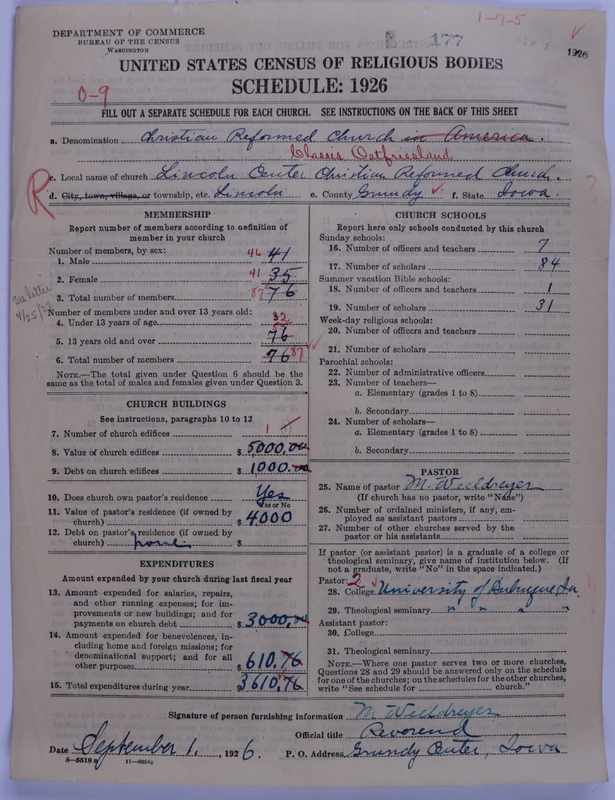 1-7-5
DEPARTMENT OF COMMERCE
BUREAU OF THE CENSUS
WASHINGTON
177
1926
UNITED STATES CENSUS OF RELIGIOUS BODIES
SCHEDULE: 1926
0-9
FILL OUT A SEPARATE SCHEDULE FOR EACH CHURCH. SEE INSTRUCTIONS ON THE BACK OF THIS SHEET
a. Denomination Christian Reformed Church in America.
Classis Ostfriesland
c. Local name of church Lincoln Center Christian Reformed Church.
R
d. City, town, village, or township, etc. Lincoln e. County Grundy f. State Iowa
MEMBERSHIP
Report number of members according to definition of
member in your church
Number of members, by sex:
1. Male 46 41
2. Female 41 35
3. Total number of members 87 76
see letter 4/25/28
Number of members under and over 13 years old:
4. Under 13 years of age 32
5. 13 years old and over 76
6. Total number of members 76 87
NOTE.—The total given under Question 6 should be the
same as the total of males and females given under Question 3.
CHURCH BUILDINGS
See instructions, paragraphs 10 to 12
7. Number of church edifices 1
8. Value of church edifices $ 5000.00
9. Debt on church edifices $ 1000.00
10. Does church own pastor's residence Yes
Yes or No
11. Value of pastor's residence (if owned by
church) $ 4000
12. Debt on pastor's residence (if owned by
church) none $
EXPENDITURES
Amount expended by your church during last fiscal year
13. Amount expended for salaries, repairs,
and other running expenses; for im-
provements or new buildings; and for
payments on church debt $ 3000.00
14. Amount expended for benevolences, in-
cluding home and foreign missions; for
denominational support; and for all
other purposes $ 610.76
15. Total expenditures during year $ 3610.76
CHURCH SCHOOLS
Report here only schools conducted by this church
Sunday schools:
16. Number of officers and teachers 7
17. Number of scholars 84
Summer vacation Bible schools:
18. Number of officers and teachers 1
19. Number of scholars 31
Week-day religious schools:
20. Number of officers and teachers
21. Number of scholars
Parochial schools:
22. Number of administrative officers
23. Number of teachers—
a. Elementary (grades 1 to 8)
b. Secondary
24. Number of scholars—
a. Elementary (grades 1 to 8)
b. Secondary
PASTOR
25. Name of pastor M. Weeldreyer
(If church has no pastor, write "None")
26. Number of ordained ministers, if any, em-
ployed as assistant pastors
27. Number of other churches served by the
pastor or his assistants
If pastor (or assistant pastor) is a graduate of a college or
theological seminary, give name of institution below. (If
not a graduate, write "No" in the space indicated.)
Pastor: 2
28. College University of Dubuque, Ia.
29. Theological seminary " " "
Assistant pastor:
30. College
31. Theological seminary
NOTE.—Where one pastor serves two or more churches,
Questions 28 and 29 should be answered only on the schedule
for one of the churches; on the schedules for the other churches,
write "See schedule for church."
Signature of person furnishing information M Weeldreyer
Official title Reverend
Date September 1, 1926. P. O. Address Grundy Center, Iowa
8—5518 a 11—9054a